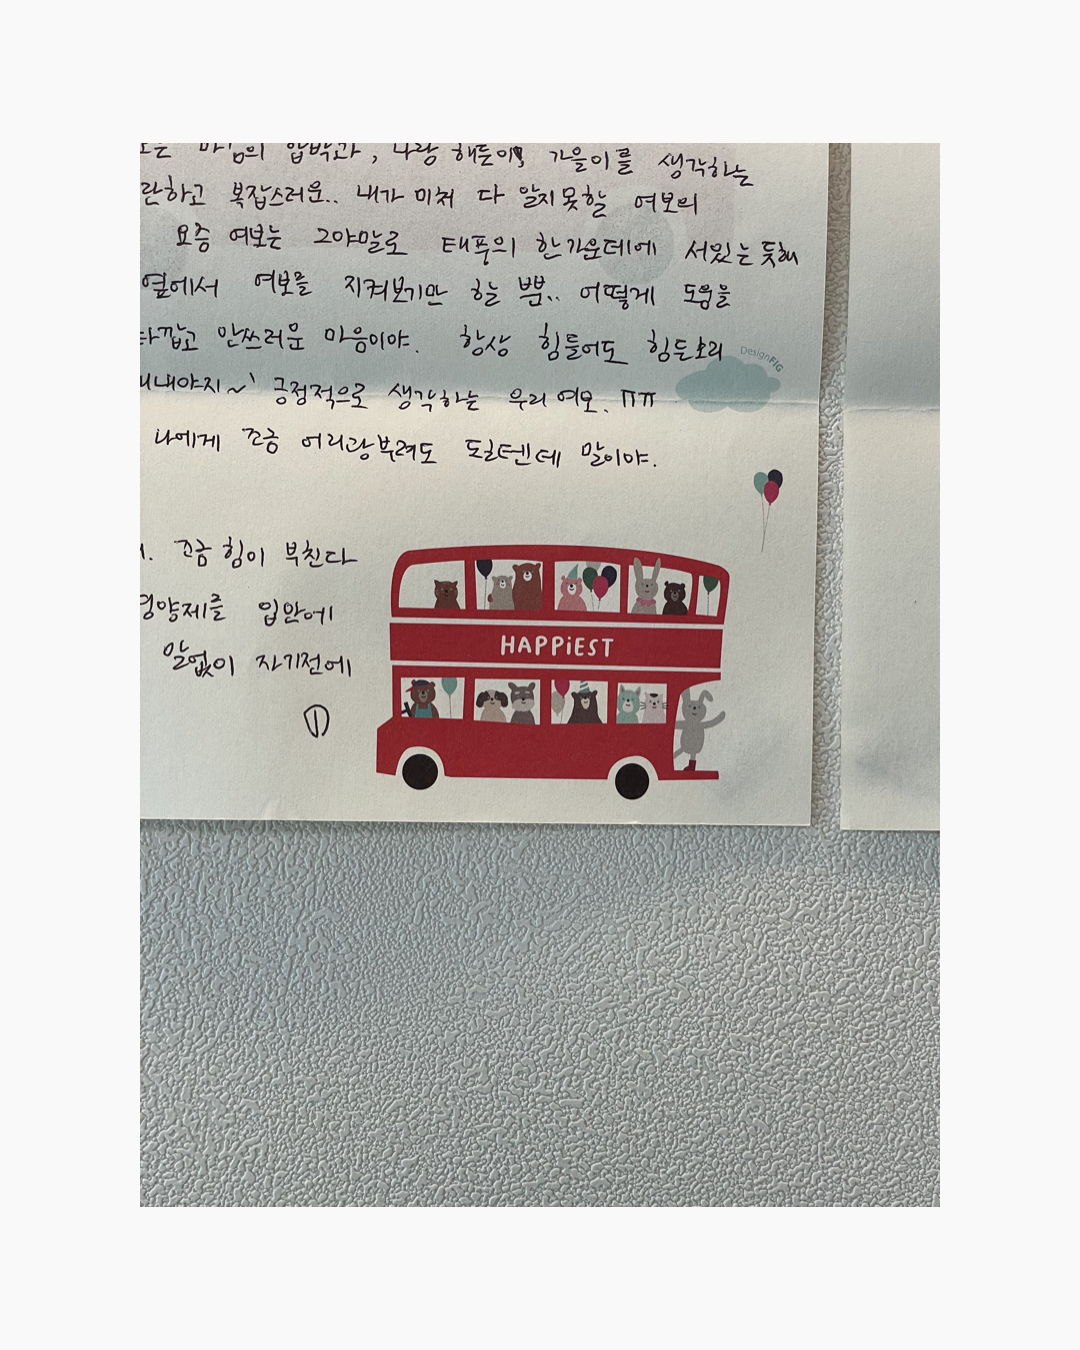 마님의 압박과, 나랑 해든이, 가을이를 생각하는
란하고 복잡스러운.. 내가 미처 다 알지못할 여보의
요즘 여보는 그야말로 태풍의 한가운데에 서있는 듯해
옆에서 여보를 지켜보기만 하는 뿐.. 어떻게 도움을
타깝고 안쓰러운 마음이야. 항상 힘들어도 힘든소리
DesignFIG
긍정적으로 생각하는 우리 여보. ㅠㅠ
나에게 조금 어리광부려도 될텐데 말이야.
조금 힘이 부친다
영양제를 입안에
말없이 자기전에
①
HAPPiEST